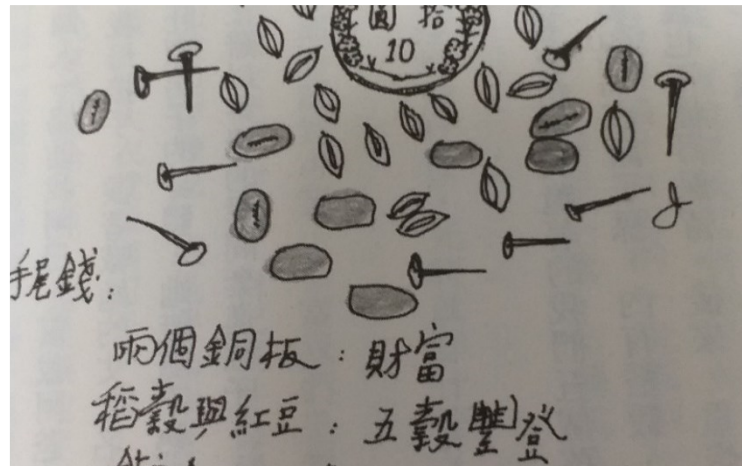 圓 拾
10
手尾錢:
兩個銅板:財富
稻穀與紅豆:五穀豐登